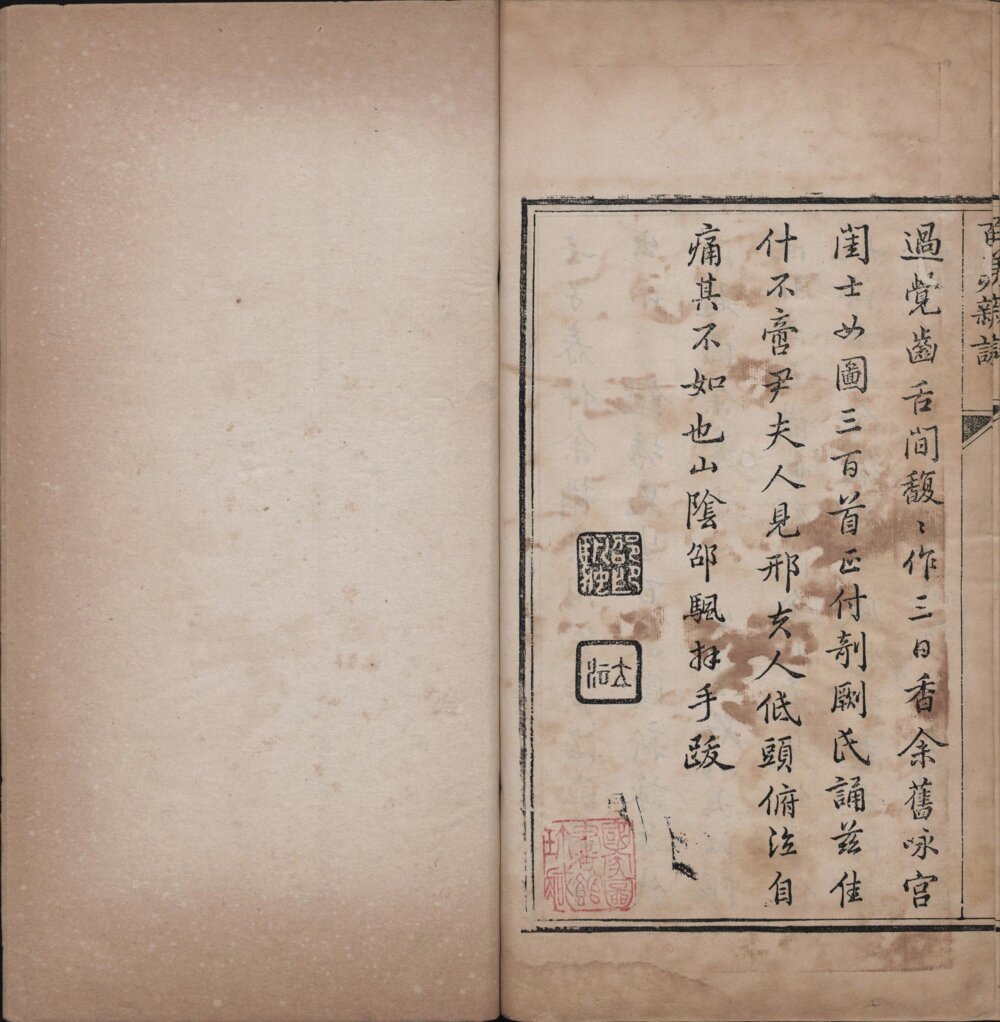 過覺齒舌間馥〻作三日香余舊咏宮
閨士女圖三百首正付剞劂氏誦茲佳
什不啻尹夫人見邢夫人低頭俯泣自
痛其不如也山陰邵颿拜手跋
國家圖
書館